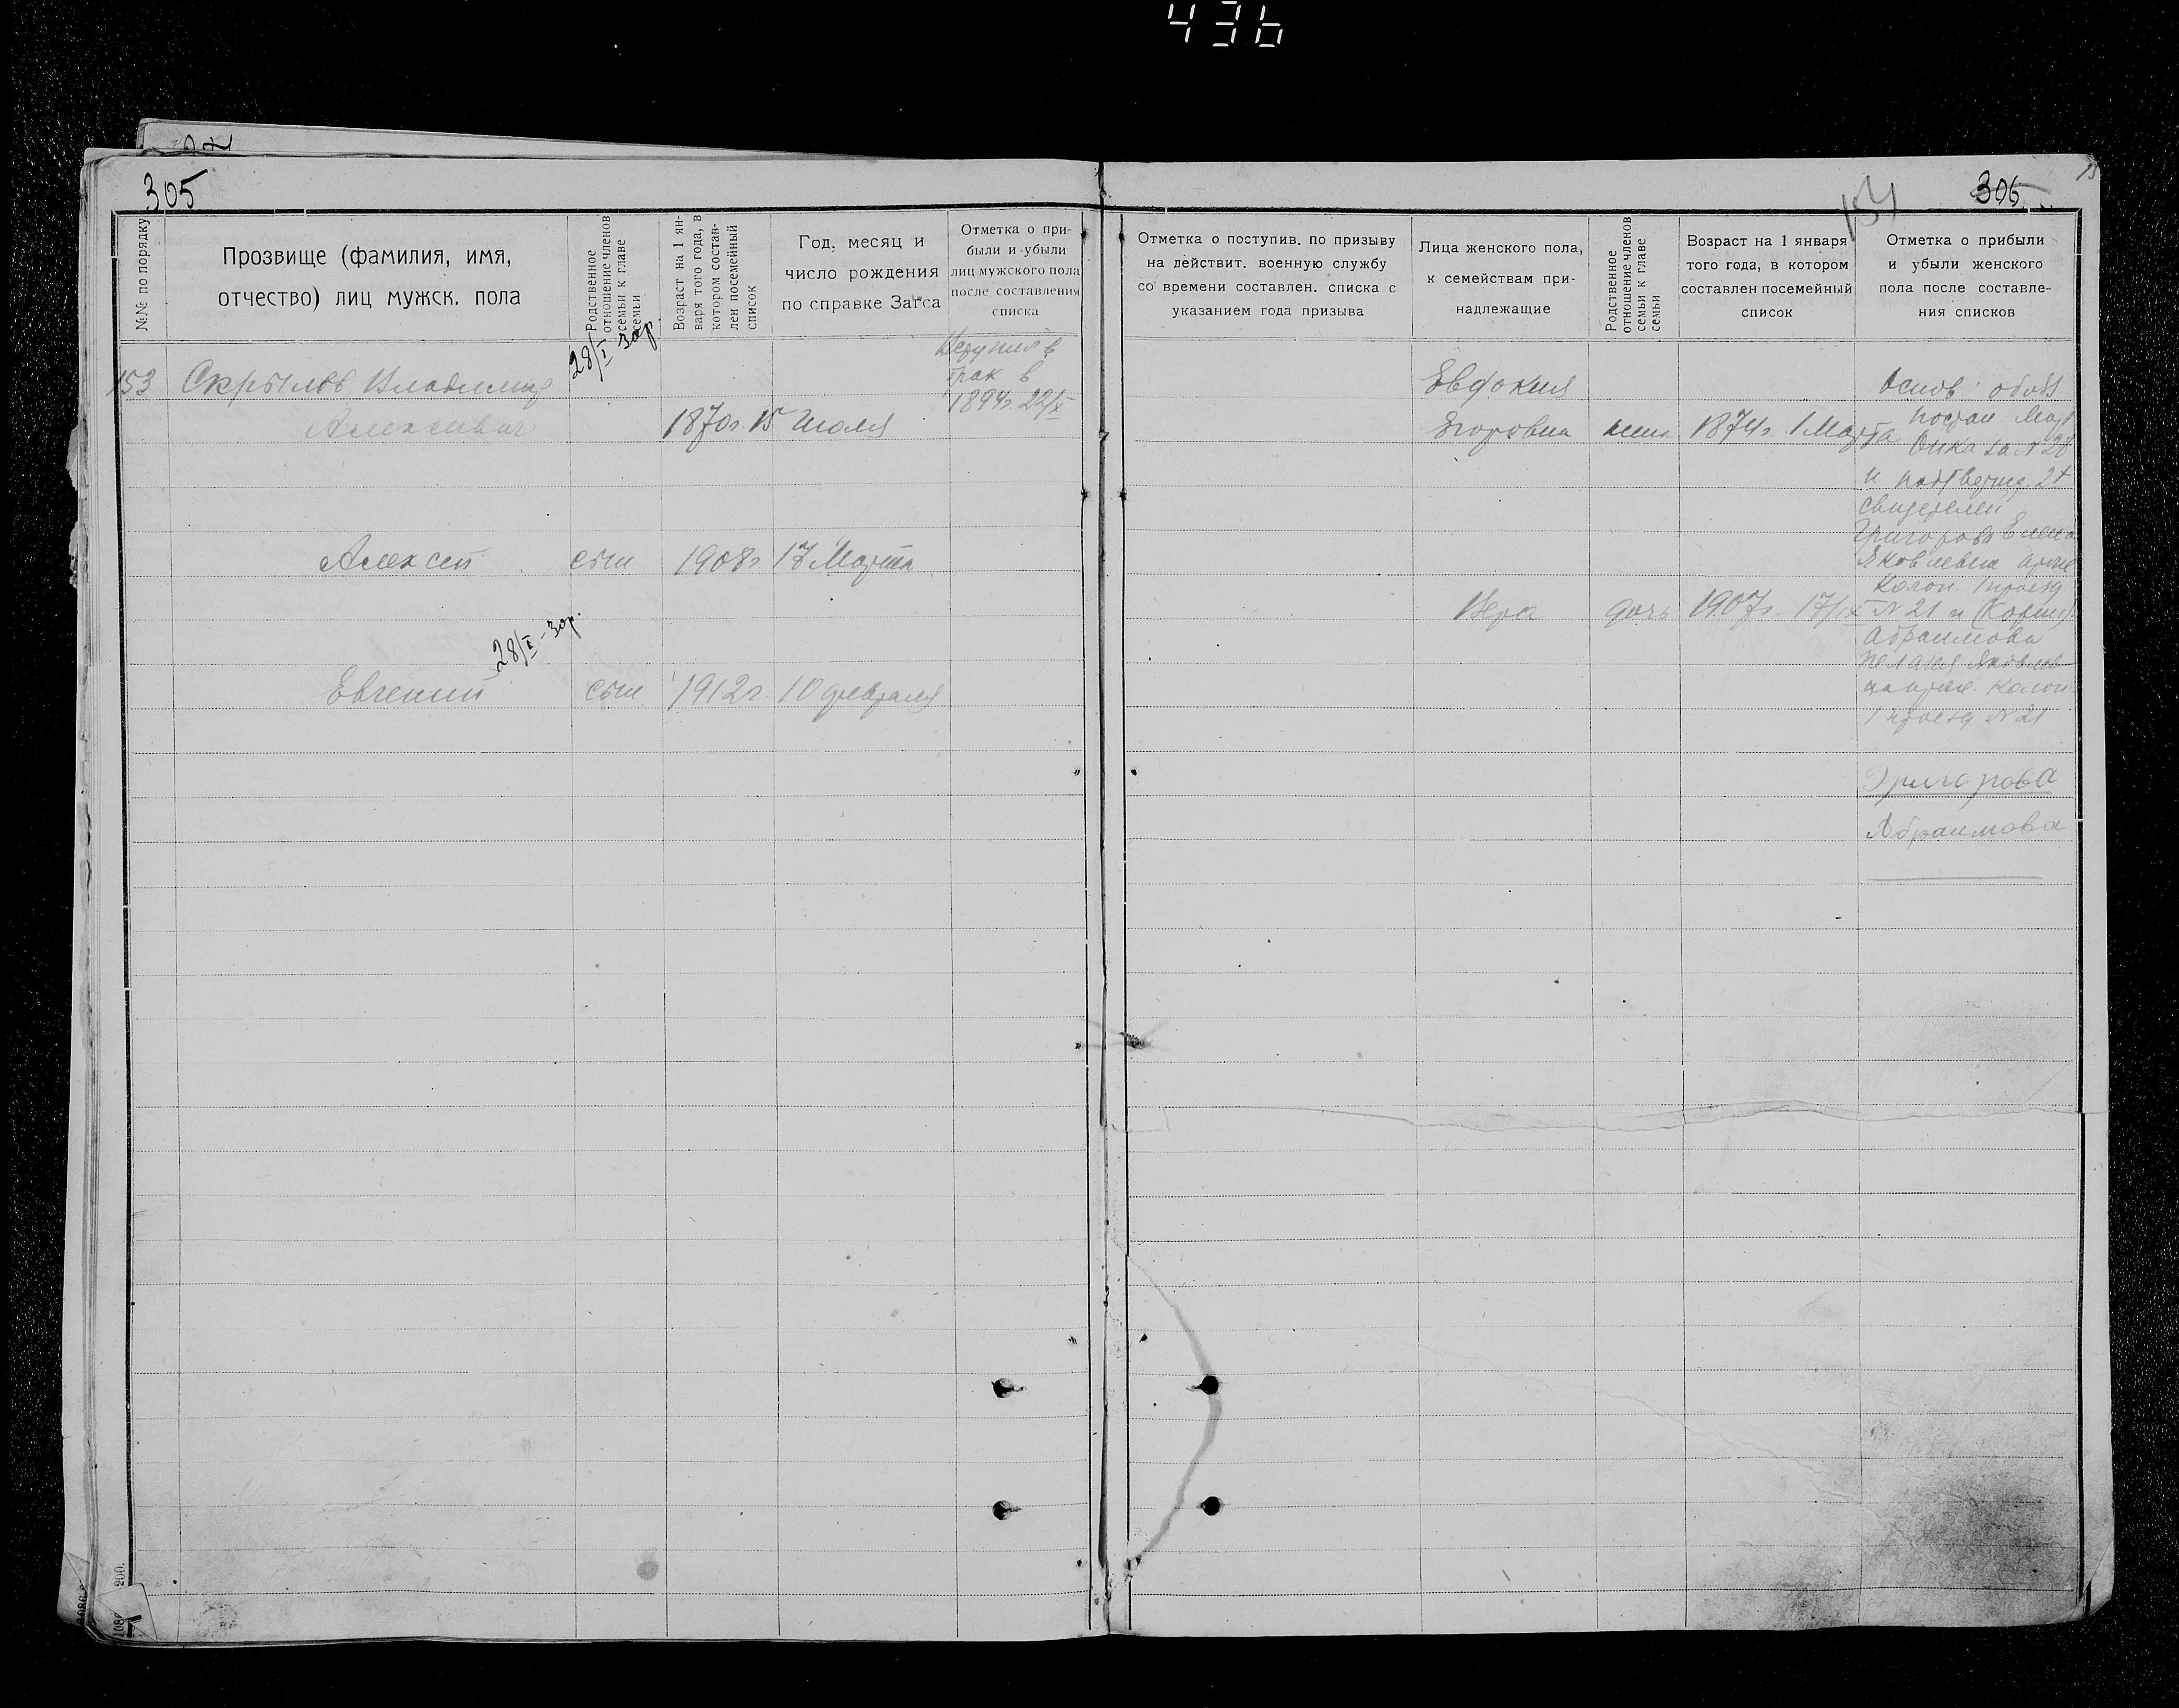 436
305
№№ по порядку
Прозвище (фамилия, имя,
отчество) лиц мужск. пола
Родственное
отношение членов
семьи к главе
семьи
Возраст на 1 ян-
варя того года, в
котором состав-
лен посемейный
список
Год, месяц и
число рождения
по справке Загса
Отметка о при-
были и убыли
лиц мужского пола
после составления
списка
28/I зар.
в
брак в
1894г 22/X
153 Скрылов Владимир
Алексеевич 1870г. 15 Июля
Алексей сын 1908г 17 Марта
28/I - зар.
Евгений сын 1912г 10 февраля
154
306
Отметка о поступив. по призыву
на действит. военную службу
со времени составлен. списка с
указанием года призыва
Лица женского пола,
к семействам при-
надлежащие
Родственное
отношение членов
семьи к главе
семьи
Возраст на 1 января
того года, в котором
составлен посемейный
список
Отметка о прибыли
и убыли женского
пола после составле-
ния списков
Евдокия
Егоровна жена 1874г. 1 Марта
Вера дочь 1907г. 17/IX
Основ.
за №
и подтвержд. 2х
свидетелей
Григорова Елена
Яковлевна
Колон. 1 проезд
№ 21 и
Абраимова
Пелагея Яковлев
на Колон
1 проезд № 21
Григорова
Абраимова